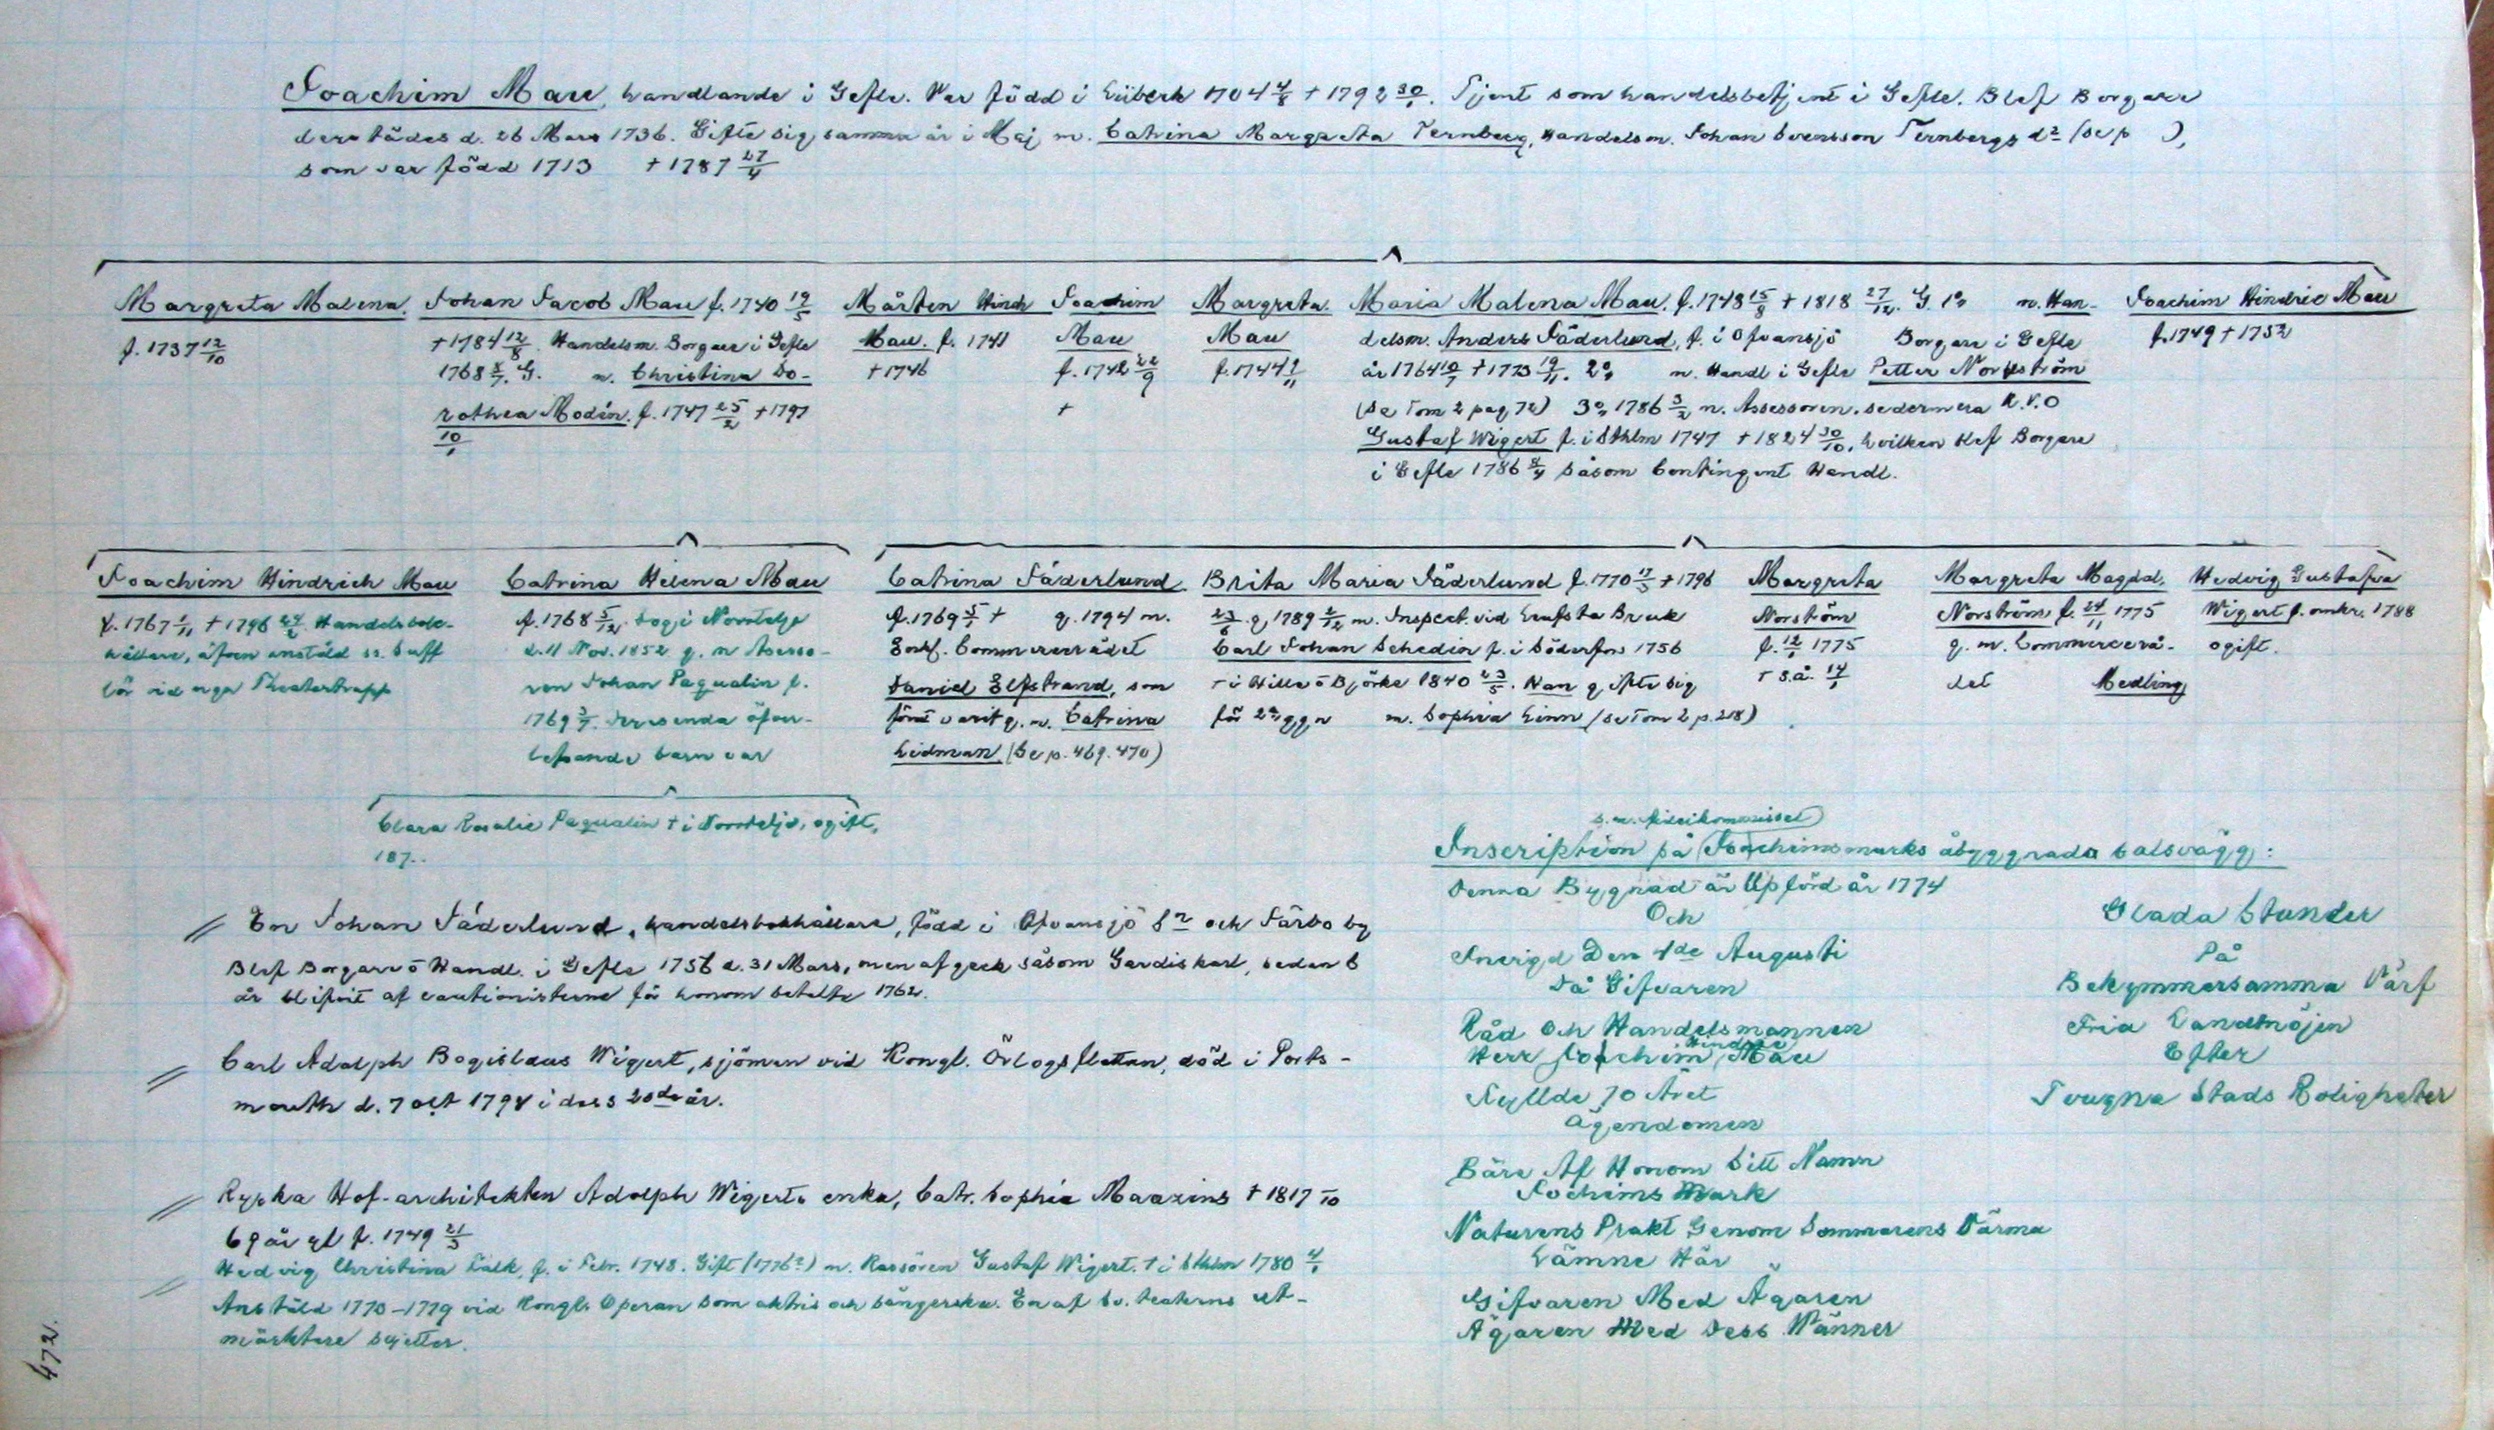 Joachim Mau, handlande i Gefle. Var född i Lübeck 1704 4/8 + 1792 30/1. Tjent som handelsbetjent i Gefle. Blef Borgare
derstädes d. 26 Mars 1736. Gifte sig samma år i Maj m. Catrina Margreta Ternberg, Handelsm. Johan Svensson Ternbergs dr (se p ),
som var född 1713 + 1787 27/4
Margreta Malena.
f. 1737 12/10
Johan Jacob Mau f. 1740 19/5
+ 1784 12/8. Handelsm. Borgare i Gefle
1768 5/7. G. m. Christina Do-
rothea Modén. f. 1747 25/2 + 1797
10/1
Mårten Hinch
Mau. f. 1741
+ 1746
Joachim
Mau
f. 1742 22/9
+
Margreta.
Mau
f. 1744 9/11
Maria Malena Mau. f. 1748 15/8 + 1818 27/12. G. 1o m. Han-
delsm. Anders Säderlund, f. i Ofvansjö Borgare i Gefle
år 1764 10/7 + 1773 19/11. 2o m. Handl i Gefle Petter Norström
(Se Tom 2 pag 72) 3o 1786 3/2 m. Assessoren. sedermera R.V.O
Gustaf Wigert f. i Sthlm 1747 + 1824 30/10. hvilken blef Borgare
i Gefle 1786 8/4 såsom Contingent Handl.
Joachim Hindric Mau
f. 1749 + 1752
Joachim Hindrich Mau
f. 1767 1/11 + 1796 24/2. Handelsbok-
hållare, äfven anstäld ss. Suff
lör vid egen Theatertrupp
Catrina Helena Mau
f. 1768 5/12. Dog i Norrtelje
d. 11 Nov. 1852 g. m Assesso-
ren Johan Paqualin f.
1769 3/7. Deras enda öfver-
lefvande barn var
Catrina Säderlund
f. 1769 5/1 + g. 1794 m.
Enkf. Commerserådet
Daniel Elfstrand, som
förut varit g. m. Catrina
Lidman (Se p. 469. 470)
Brita Maria Säderlund f. 1770 17/5 + 1796
23/6 g. 1789 2/12 m. Inspect. vid Leufsta Bruk
Carl Johan Schedin f. i Söderfors 1756
+ i Hille o Björke 1840 23/5. Han gifte sig
för 2a ggn m. Sophia Linn (se Tom 2 p. 218)
Margreta
Norström
f. 12/1 1775
+ s.å. 14/1
Margreta Magdal.
Norström f. 24/11 1775
g. m. Commercerå-
det Medling
Hedvig Gustafva
Wigert f. omkr. 1788
ogift.
Clara Rosalie Paqualin + i Norrtelje, ogift,
187..
En Johan Säderlund, handelsbokhållare, född i Ofvansjö Sn och Järbo by
Blef Borgare o Handl. i Gefle 1756 d. 31 Mars, men afgeck såsom Gardiskarl, sedan 6
år blifvit af cautionisterne för honom betalte 1762.
Carl Adolph Bogislaus Wigert, sjöman vid Kongl. Örlogsflottan, död i Ports-
mouth d. 7 oct 1798 i dess 20de år.
Rypka Hof-architekten Adolph Wigerts enka, Catr. Sophia Maazius + 1817 7/10
69 år gl f. 1749 21/3
Hedvig Christina Falk, f. i Febr. 1748. Gift (1776?) m. Kassören Gustaf Wigert. + i Sthlm 1780 4/1
Anstäld 1773–1779 vid Kongl. Operan som aktris och sångerska. En af Sv. teaterns ut-
märktare sujetter.
s.m. fideikomisset
Inscription på Joachimsmarks åbyggnads salsvägg:
Denna Bygnad är Upförd år 1774
Och
Invigd Den 4de Augusti
Då Gifvaren
Råd Och Handelsmannen
Hindric
Herr Joachim Mau
Fyllde 70 Året
Ägendomen
Bäre Af Honom Sitt Namn
Jochims Mark
Naturens Prakt Genom Sommarens Värma
Lämne Här
Gifvaren Med Ägaren
Ägaren Med Dess Wänner
Glada Stunder
På
Bekymmersamma Värf
Fria Landtnöjen
Efter
Tvugna Stads Roligheter
472.